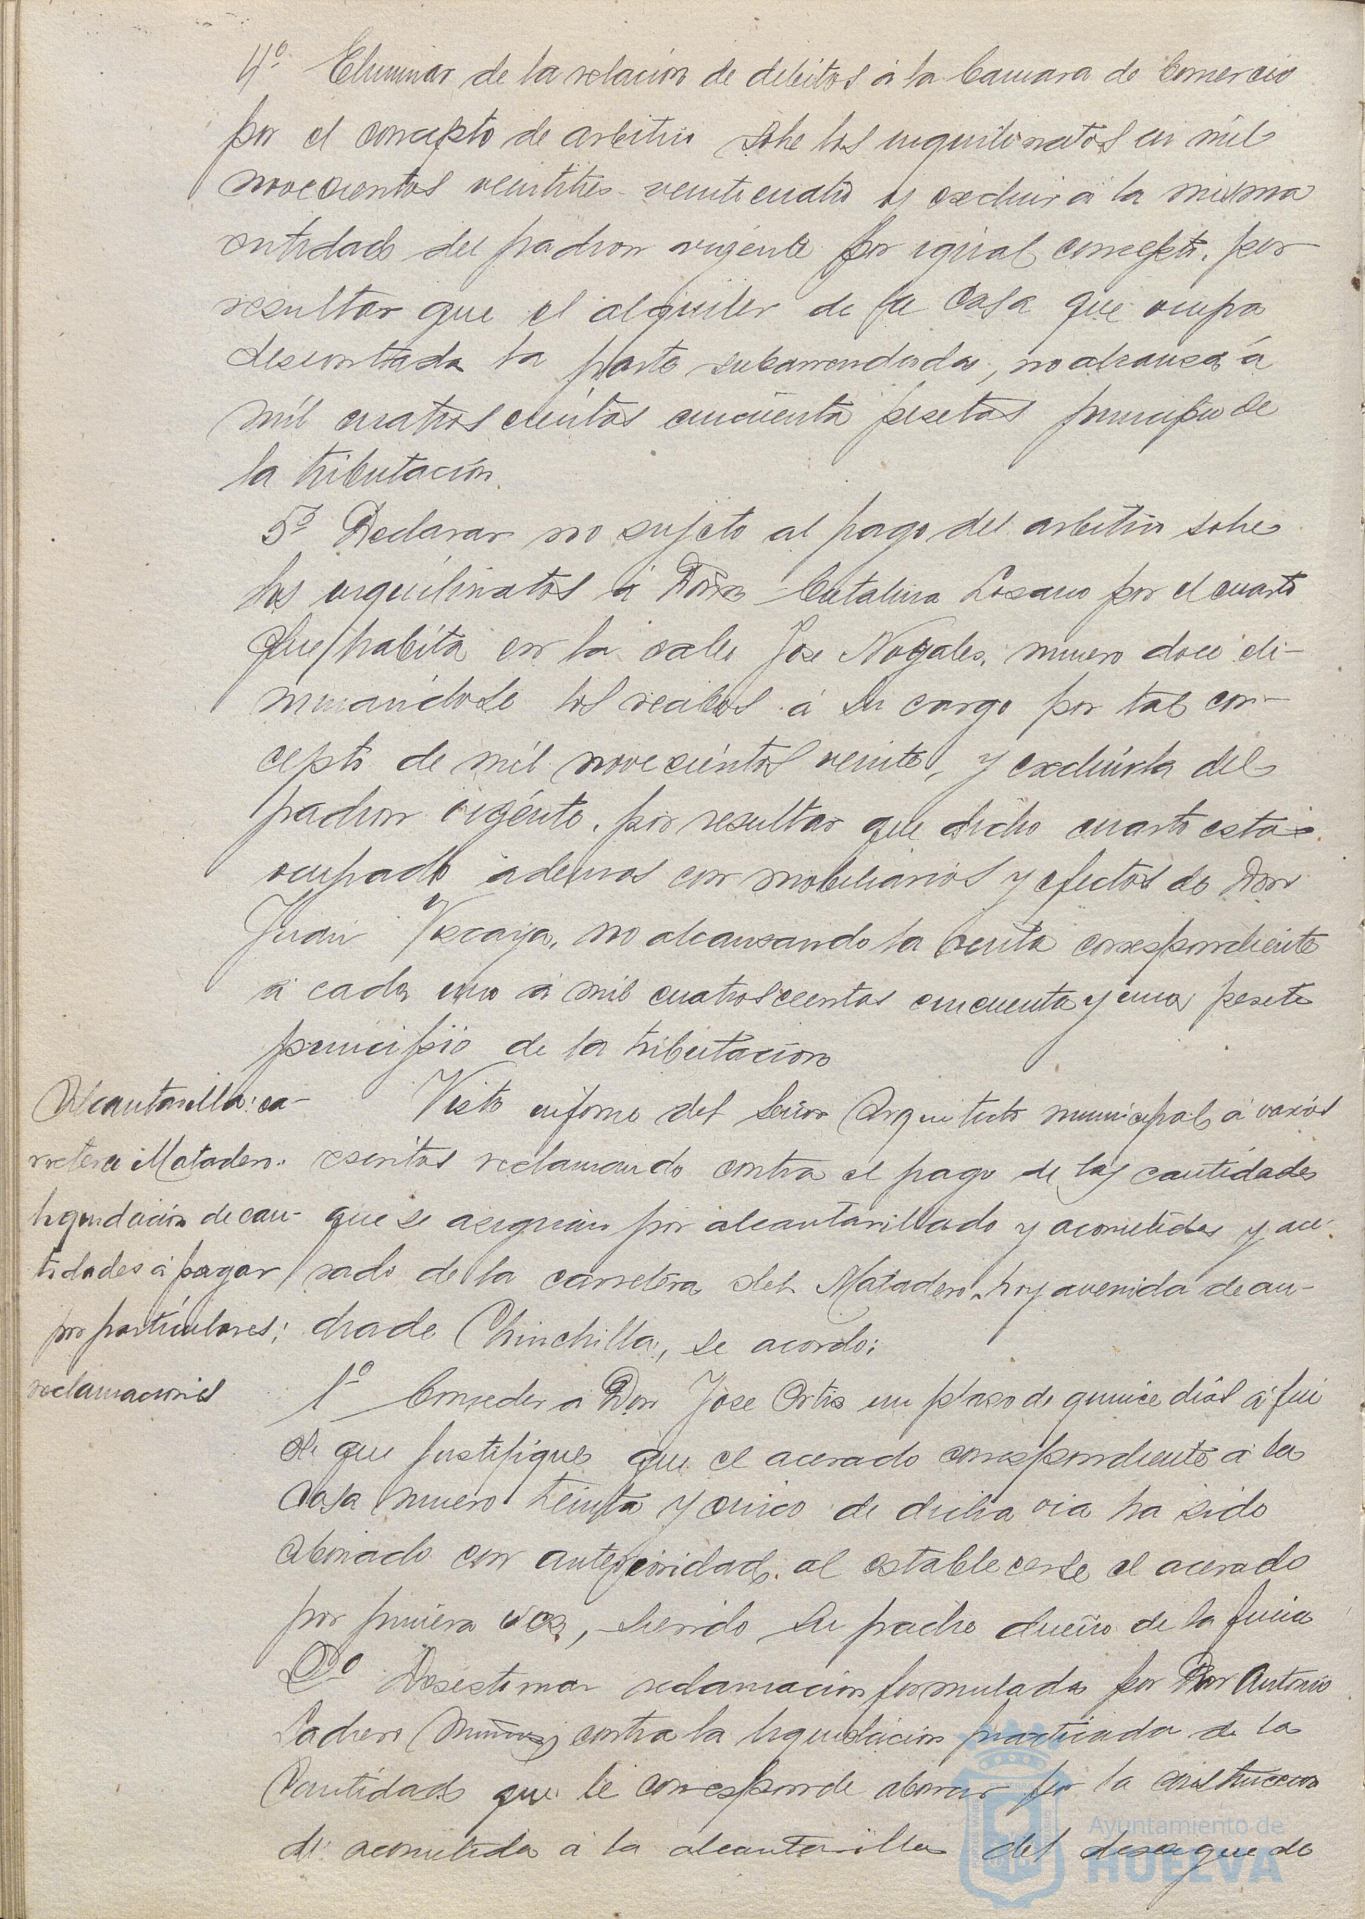 4º Eliminar de la relación de débitos á la Camara de Comercio
por el concepto de arbitrio sobre los inquilinatos en mil
novecientos veintitres-veinticuatro y excluir á la misma
entidad del padron vigente por igual concepto, por
resultar que el alquiler de la casa que ocupa
descontada la parte subarrendada, no alcanza á
mil cuatroscientas cincuenta pesetas principio de
la tributación.
5º Declarar no sujeto al pago del arbitrio sobre
los inquilinatos á Doña Catalina Lozano por el cuarto
que habita en la calle Jose Nogales, numero doce eli-
minandose los recibos á su cargo por tal con-
cepto de mil novecientos veinte, y excluirla del
padron vigente, por resultar que dicho cuarto está
ocupado además con mobiliarios y efectos de Don
Juan Viscaya, no alcanzando la renta correspondiente
á cada uno á mil cuatroscientas cincuenta y una peseta
principio de la tributacion
Alcantarilla: ca-
rretera Matadero:
liquidación de can-
tidades á pagar
por particulares;
reclamaciones
Visto informe del Señor Arquitecto municipal á varios
escritos reclamando contra el pago de las cantidades
que se asignan por alcantarillado y acometidas y ace-
rado de la carretera del Matadero, hoy avenida de An-
drade Chinchilla, se acordo:
1º Conceder a Don Jose Ortiz un plazo de quince dias á fin
de que justifique que el acerado correspondiente á la
casa numero treinta y cinco de dicha via ha sido
abonado con anterioridad al establecerse el acerado
por primera vez, siendo su padre dueño de la finca
2º Desestimar reclamación formulada por Don Antonio
Ladrero Muñoz contra la liquidación practicada de la
Cantidad que le corresponde abonar por la construccion
de acometida á la alcantarilla del desague de
Ayuntamiento de
HUELVA